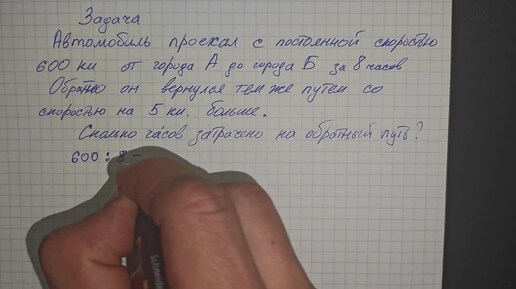 Задача
Автомобиль проехал с постоянной скоростью
600 км от города А до города Б за 8 часов
Обратно он вернулся тем же путем со
скоростью на 5 км. больше.
Сколько часов затрачено на обратный путь?
600 : 8 -
Schneider